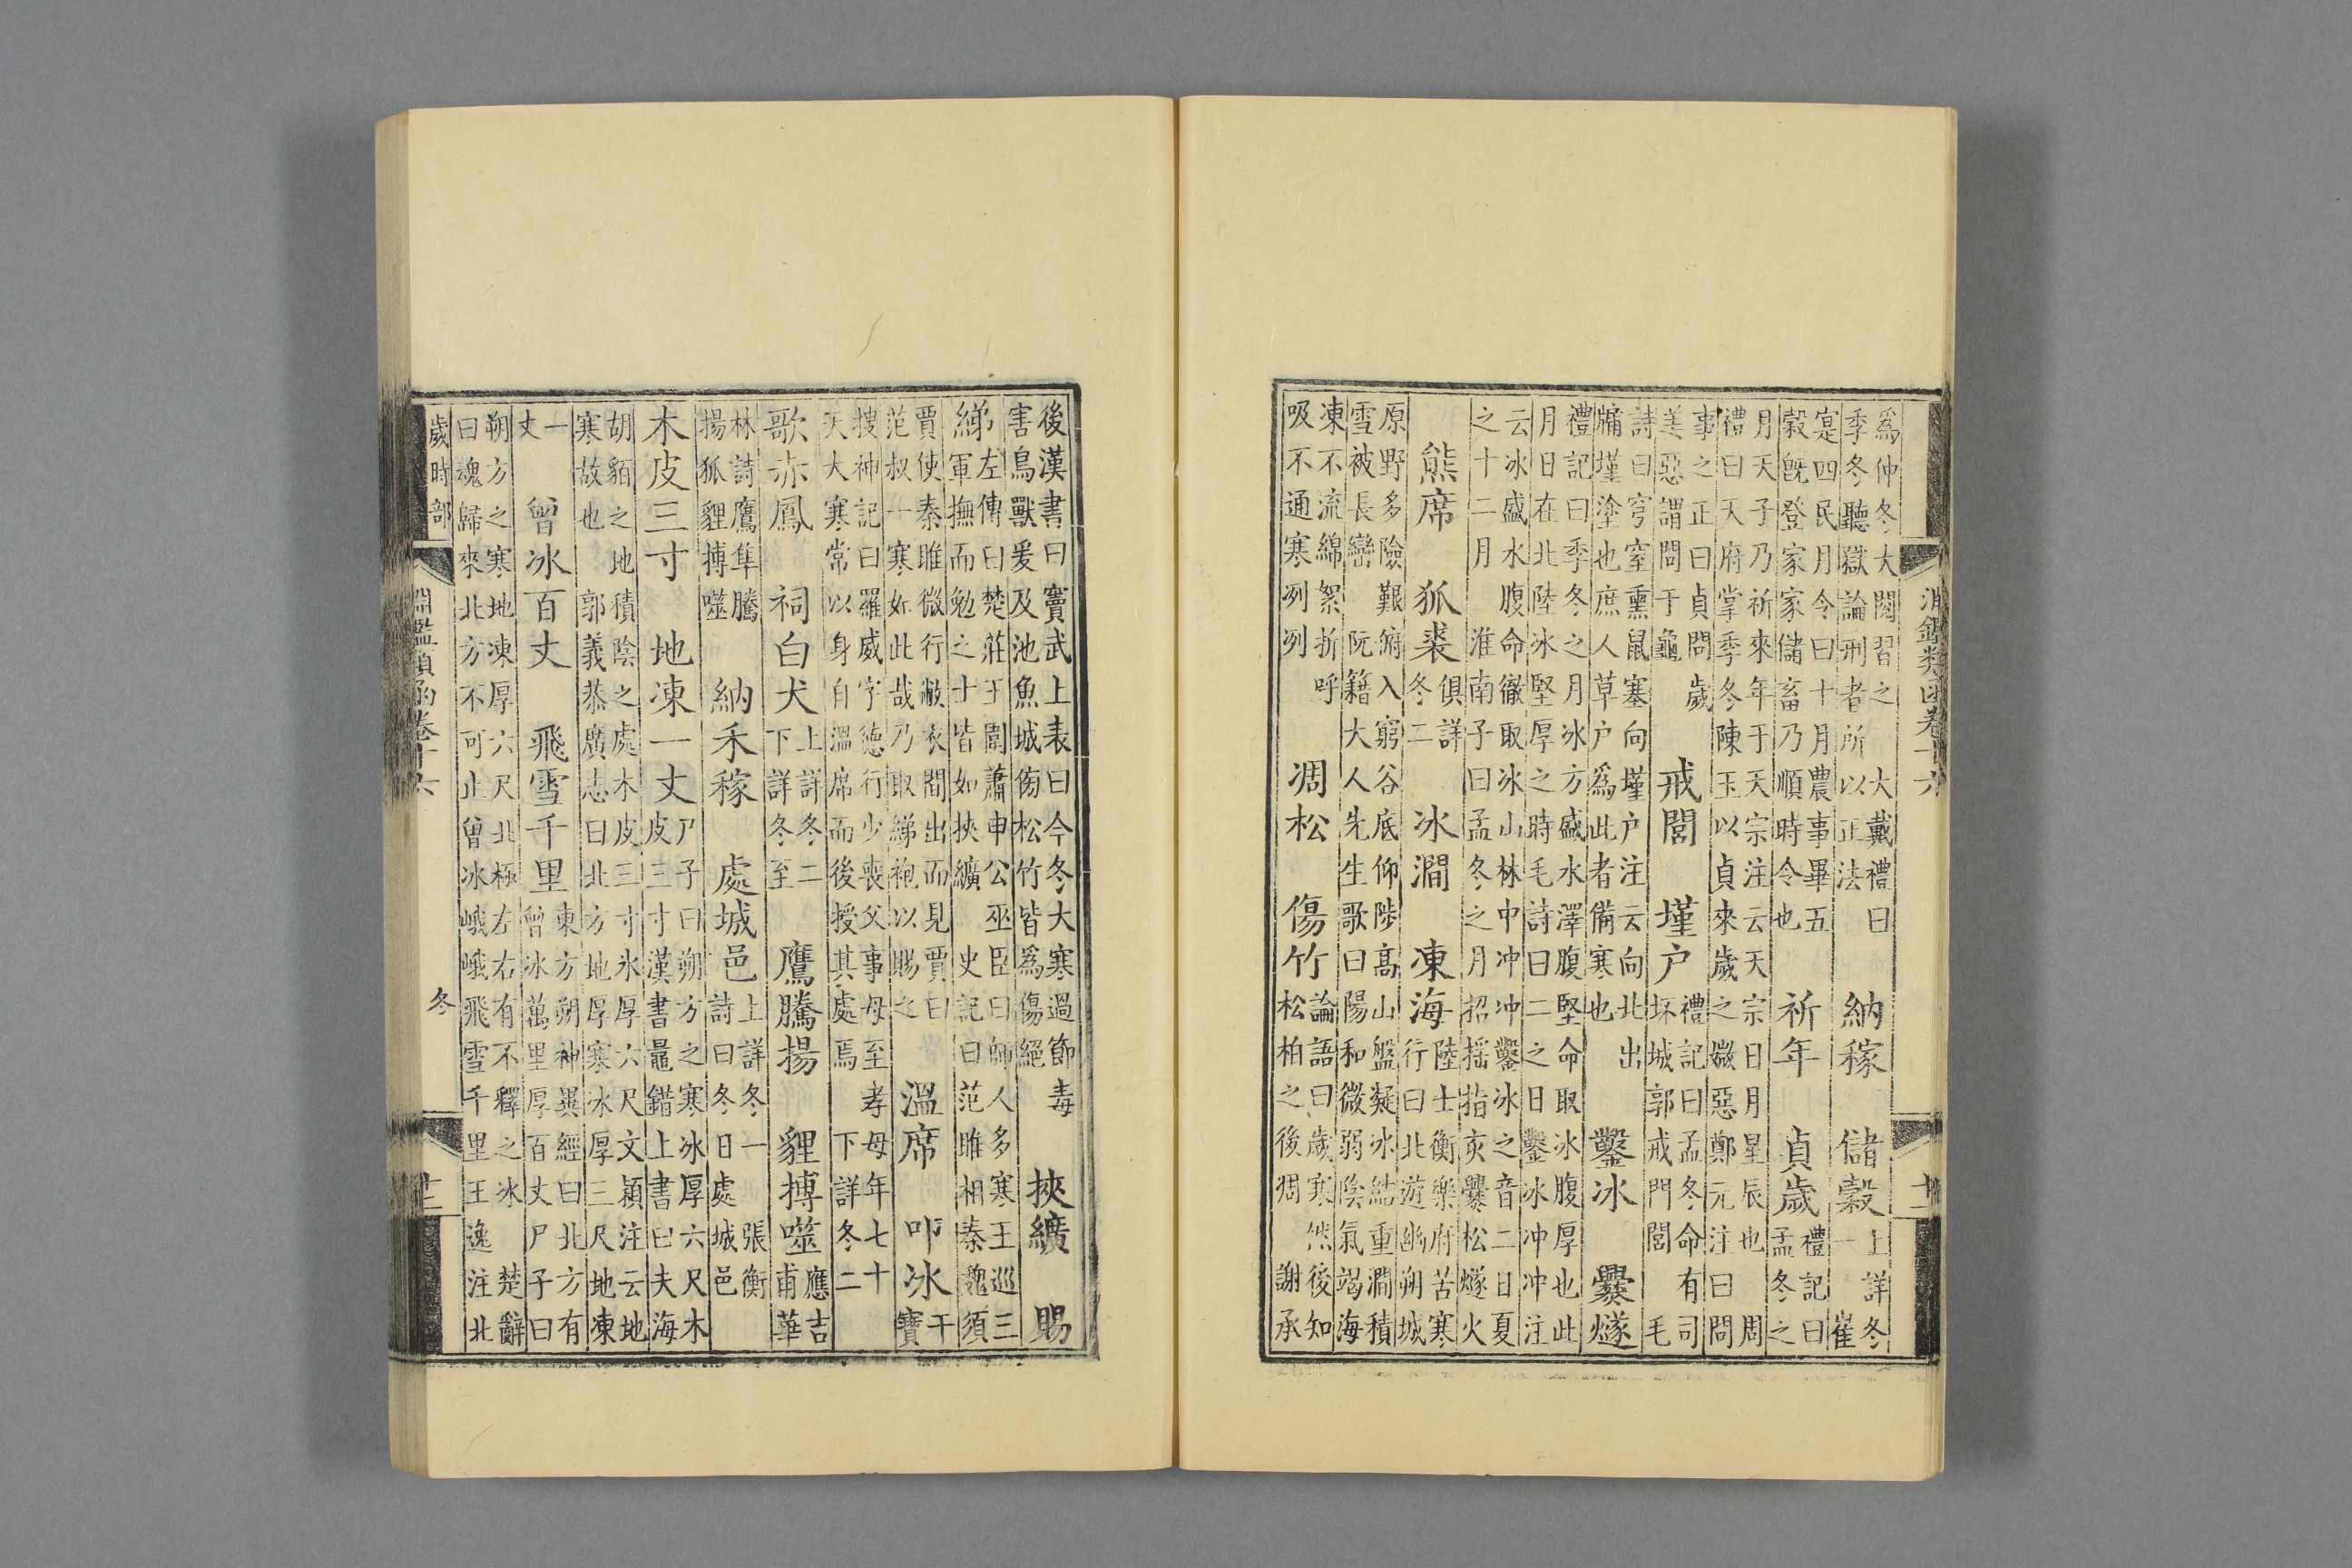 淵鑑類函卷十六
爲仲冬大閱習之 大戴禮曰季冬聽獄論刑者所以正法 納稼 儲穀 上詳冬一 崔
寔四民月令曰十月農事畢五穀既登家家儲畜乃順時令也 祈年 貞歲 禮記曰孟冬之
月天子乃祈來年于天宗注云天宗日月星辰也 周禮曰天府掌季冬陳玉以貞來歲之媺惡鄭元注曰問
事之正曰貞問歲美惡謂問于龜 戒閭 墐户 禮記曰孟冬命有司坏城郭戒門閭 毛
詩曰穹窒熏鼠塞向墐户注云向北出牖墐塗也庶人草户爲此者備寒也 鑿冰 爨燧
禮記曰季冬之月冰方盛水澤腹堅命取冰腹厚也此月日在北陸冰堅厚之時毛詩曰二之日鑿冰冲冲注
云冰盛水腹命徹取冰山林中冲冲鑿冰之音二日夏之十二月 淮南子曰孟冬之月招摇指亥爨松燧火
熊席 狐裘 俱詳冬二 冰澗 凍海 陸士衡樂府苦寒行曰北遊幽朔城
原野多險艱俯入窮谷底仰陟高山盤凝冰結重澗積雪被長巒 阮籍大人先生歌曰陽和微弱陰氣竭海
凍不流綿絮折呼吸不通寒冽冽 凋松 傷竹 論語曰歲寒然後知松柏之後凋 謝承
後漢書曰竇武上表曰今冬大寒過節毒害鳥獸爰及池魚城傍松竹皆爲傷絕 挾纊 賜
綈 左傳曰楚莊王圍蕭申公巫臣曰師人多寒王巡三軍撫而勉之士皆如挾纊 史記曰范雎相秦魏須
賈使秦雎微行敝衣間出而見賈曰范叔一寒如此哉乃取綈袍以賜之 溫席 叩冰 干寶
搜神記曰羅威字德行少喪父事母至孝母年七十天大寒常以身自溫席而後授其處焉 下詳冬二
歌赤鳳 祠白犬 上詳冬二下詳冬至 鷹騰揚 貍搏噬 應吉甫華
林詩鷹隼騰揚狐貍搏噬 納禾稼 處城邑 上詳冬一 張衡詩曰冬日處城邑
木皮三寸 地凍一丈 尸子曰朔方之寒冰厚六尺木皮三寸漢書鼂錯上書曰夫海
胡貊之地積陰之處木皮三寸氷厚六尺文穎注云地寒故也 郭義恭廣志曰北方地厚寒冰厚三尺地凍
一丈 曾冰百丈 飛雪千里 東方朔神異經曰北方有曾冰萬里厚百丈尸子曰
朔方之寒地凍厚六尺北極左右有不釋之冰 楚辭曰魂歸來北方不可止曾冰峨峨飛雪千里王逸注北
歲時部 淵鑑類函卷十六 冬